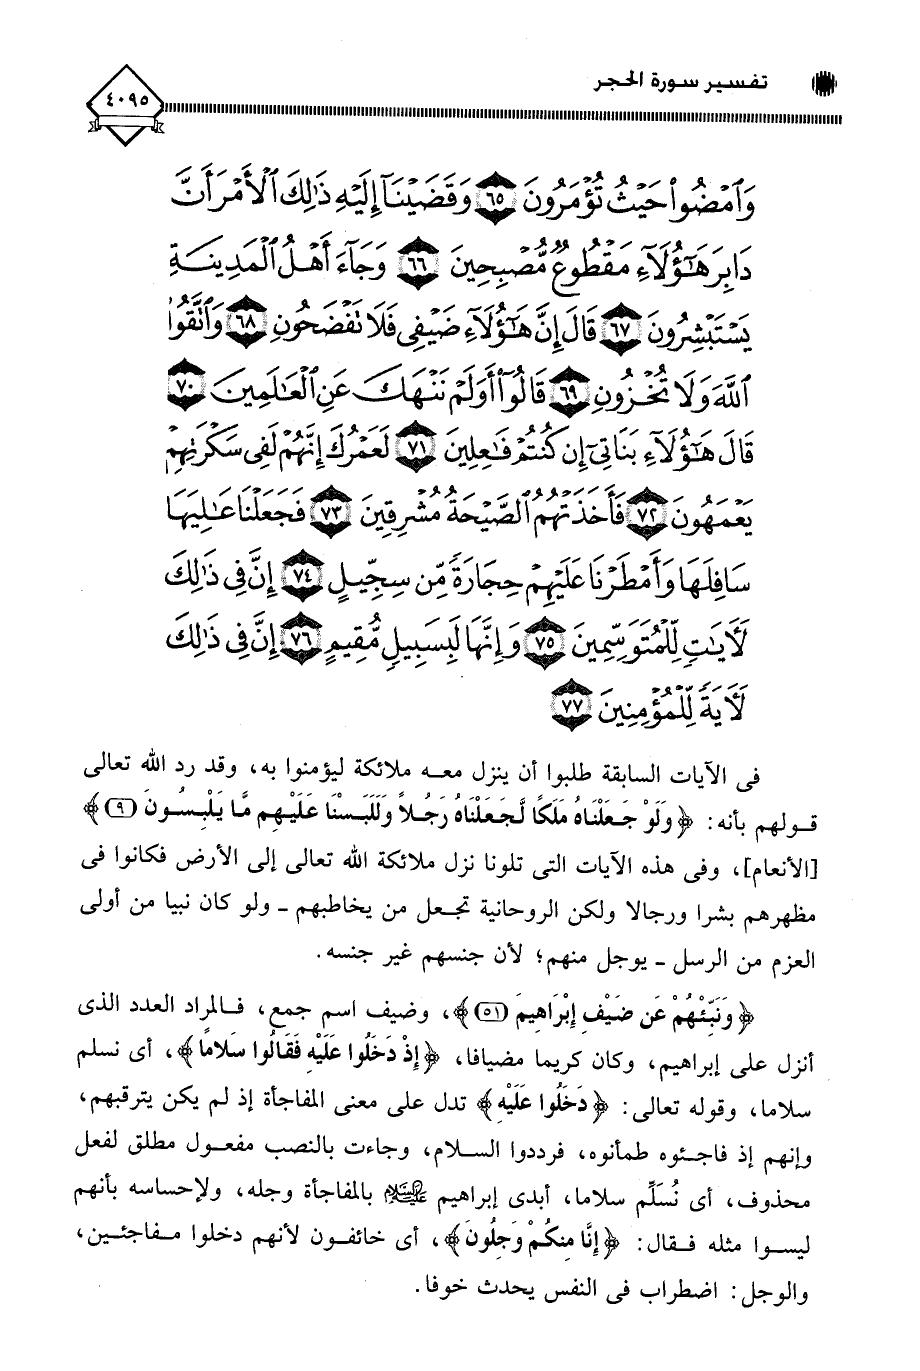 تفسير سورة الحجر
٤٠٩٥
وَٱمْضُوا۟ حَيْثُ تُؤْمَرُونَ ٦٥ وَقَضَيْنَآ إِلَيْهِ ذَٰلِكَ ٱلْأَمْرَ أَنَّ
دَابِرَ هَٰٓؤُلَآءِ مَقْطُوعٌ مُّصْبِحِينَ ٦٦ وَجَآءَ أَهْلُ ٱلْمَدِينَةِ
يَسْتَبْشِرُونَ ٦٧ قَالَ إِنَّ هَٰٓؤُلَآءِ ضَيْفِى فَلَا تَفْضَحُونِ ٦٨ وَٱتَّقُوا۟
ٱللَّهَ وَلَا تُخْزُونِ ٦٩ قَالُوٓا۟ أَوَلَمْ نَنْهَكَ عَنِ ٱلْعَٰلَمِينَ ٧٠
قَالَ هَٰٓؤُلَآءِ بَنَاتِىٓ إِن كُنتُمْ فَٰعِلِينَ ٧١ لَعَمْرُكَ إِنَّهُمْ لَفِى سَكْرَتِهِمْ
يَعْمَهُونَ ٧٢ فَأَخَذَتْهُمُ ٱلصَّيْحَةُ مُشْرِقِينَ ٧٣ فَجَعَلْنَا عَٰلِيَهَا
سَافِلَهَا وَأَمْطَرْنَا عَلَيْهِمْ حِجَارَةً مِّن سِجِّيلٍ ٧٤ إِنَّ فِى ذَٰلِكَ
لَءَايَٰتٍ لِّلْمُتَوَسِّمِينَ ٧٥ وَإِنَّهَا لَبِسَبِيلٍ مُّقِيمٍ ٧٦ إِنَّ فِى ذَٰلِكَ
لَءَايَةً لِّلْمُؤْمِنِينَ ٧٧
فى الآيات السابقة طلبوا أن ينزل معه ملائكة ليؤمنوا به، وقد رد الله تعالى
قولهم بأنه: ﴿وَلَوْ جَعَلْنَاهُ مَلَكًا لَّجَعَلْنَاهُ رَجُلاً وَلَلَبَسْنَا عَلَيْهِم مَّا يَلْبِسُونَ (٩)﴾
[الأنعام]، وفى هذه الآيات التى تلونا نزل ملائكة الله تعالى إلى الأرض فكانوا فى
مظهرهم بشرا ورجالا ولكن الروحانية تجعل من يخاطبهم ـ ولو كان نبيا من أولى
العزم من الرسل ـ يوجل منهم؛ لأن جنسهم غير جنسه.
﴿وَنَبِّئْهُمْ عَن ضَيْفِ إِبْرَاهِيمَ (٥١)﴾، وضيف اسم جمع، فالمراد العدد الذى
أنزل على إبراهيم، وكان كريما مضيافا، ﴿إِذْ دَخَلُوا عَلَيْهِ فَقَالُوا سَلامًا﴾، أى نسلم
سلاما، وقوله تعالى: ﴿دَخَلُوا عَلَيْهِ﴾ تدل على معنى المفاجأة إذ لم يكن يترقبهم،
وإنهم إذ فاجئوه طمأنوه، فرددوا السلام، وجاءت بالنصب مفعول مطلق لفعل
محذوف، أى نُسَلِّم سلاما، أبدى إبراهيم عليه السلام بالمفاجأة وجله، ولإحساسه بأنهم
ليسوا مثله فقال: ﴿إِنَّا مِنكُمْ وَجِلُونَ﴾، أى خائفون لأنهم دخلوا مفاجئين،
والوجل: اضطراب فى النفس يحدث خوفا.